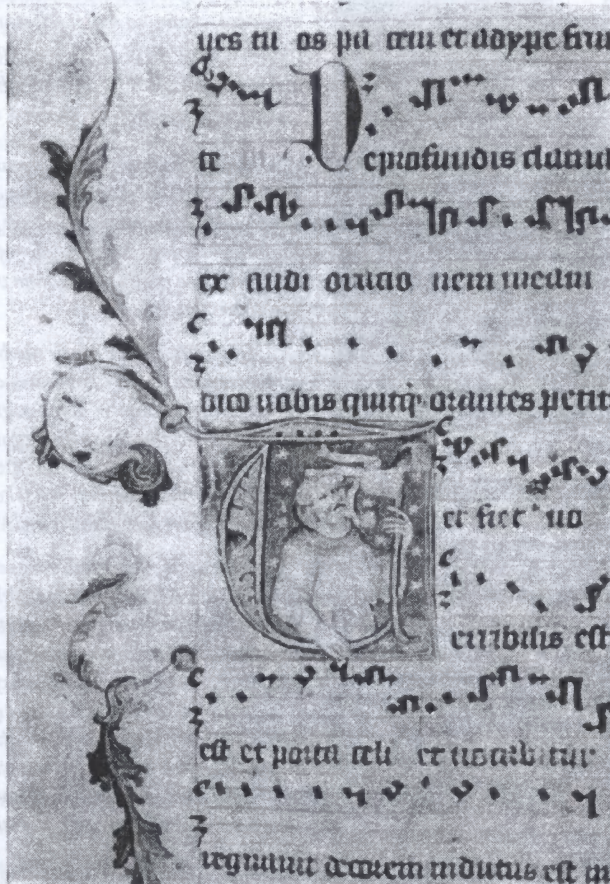 nes tu os pa cem et adype fru
te De profundis clamav
ex audi oratio nem meam
dico uobis quitq; orantes petit
et fiet uo
Terribilis est
est et porta celi et uocabitur
regnauit decorem indutus est